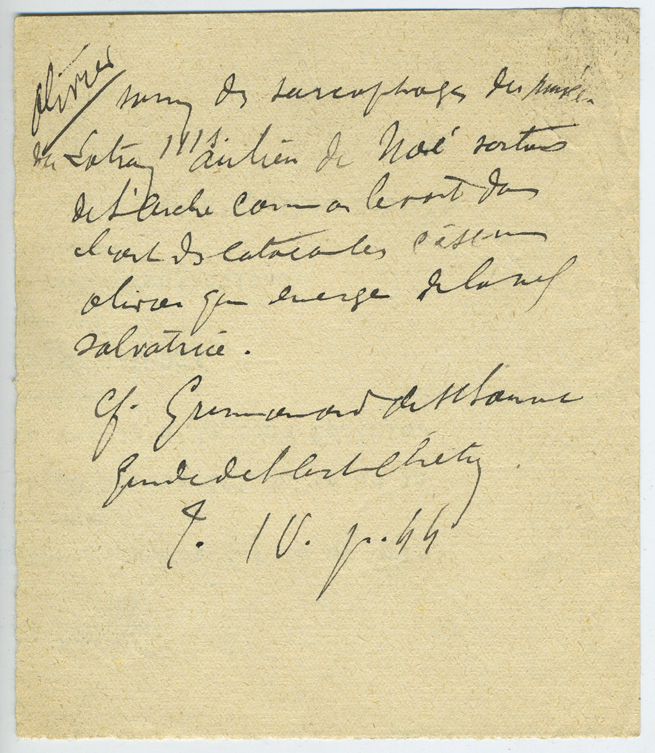 olivier
sur un des sarcophages du musée
du Latran au lieu de Noé sortant
de l'Arche comme on le voit dans
l'art des catacombes c'est un
olivier qui émerge de la nef
salvatrice.
cf. Grimouard de St Laurent
Guide de l'art chrétien
T. IV. p. 44